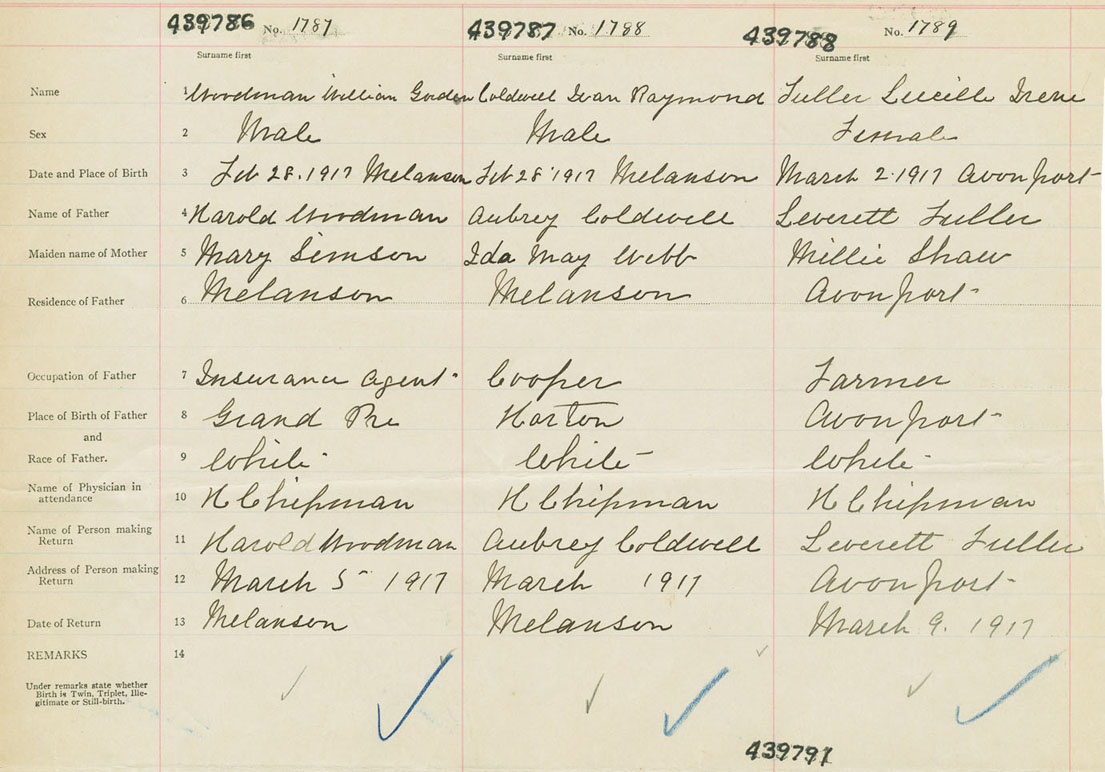 439786 No. 1787 439787 No. 1788 439788 No. 1789
Surname first Surname first Surname first
Name 1 Woodman William Gorden Coldwell Ivan Raymond Fuller Lucille Irene
Sex 2 Male Male Female
Date and Place of Birth 3 Feb 28. 1917 Melanson Feb 28 1917 Melanson March 2. 1917 Avonport
Name of Father 4 Harold Woodman Aubrey Coldwell Leverett Fuller
Maiden name of Mother 5 Mary Simson Ida May Webb Millie Shaw
Residence of Father 6 Melanson Melanson Avonport
Occupation of Father 7 Insurance Agent Cooper Farmer
Place of Birth of Father 8 Grand Pre Horton Avonport
and
Race of Father. 9 White White White
Name of Physician in
attendance 10 H Chipman H Chipman H Chipman
Name of Person making
Return 11 Harold Woodman Aubrey Coldwell Leverett Fuller
Address of Person making
Return 12 March 5 1917 March 1917 Avonport
Date of Return 13 Melanson Melanson March 9. 1917
REMARKS 14
Under remarks state whether
Birth is Twin, Triplet, Ille-
gitimate or Still-birth.
439791